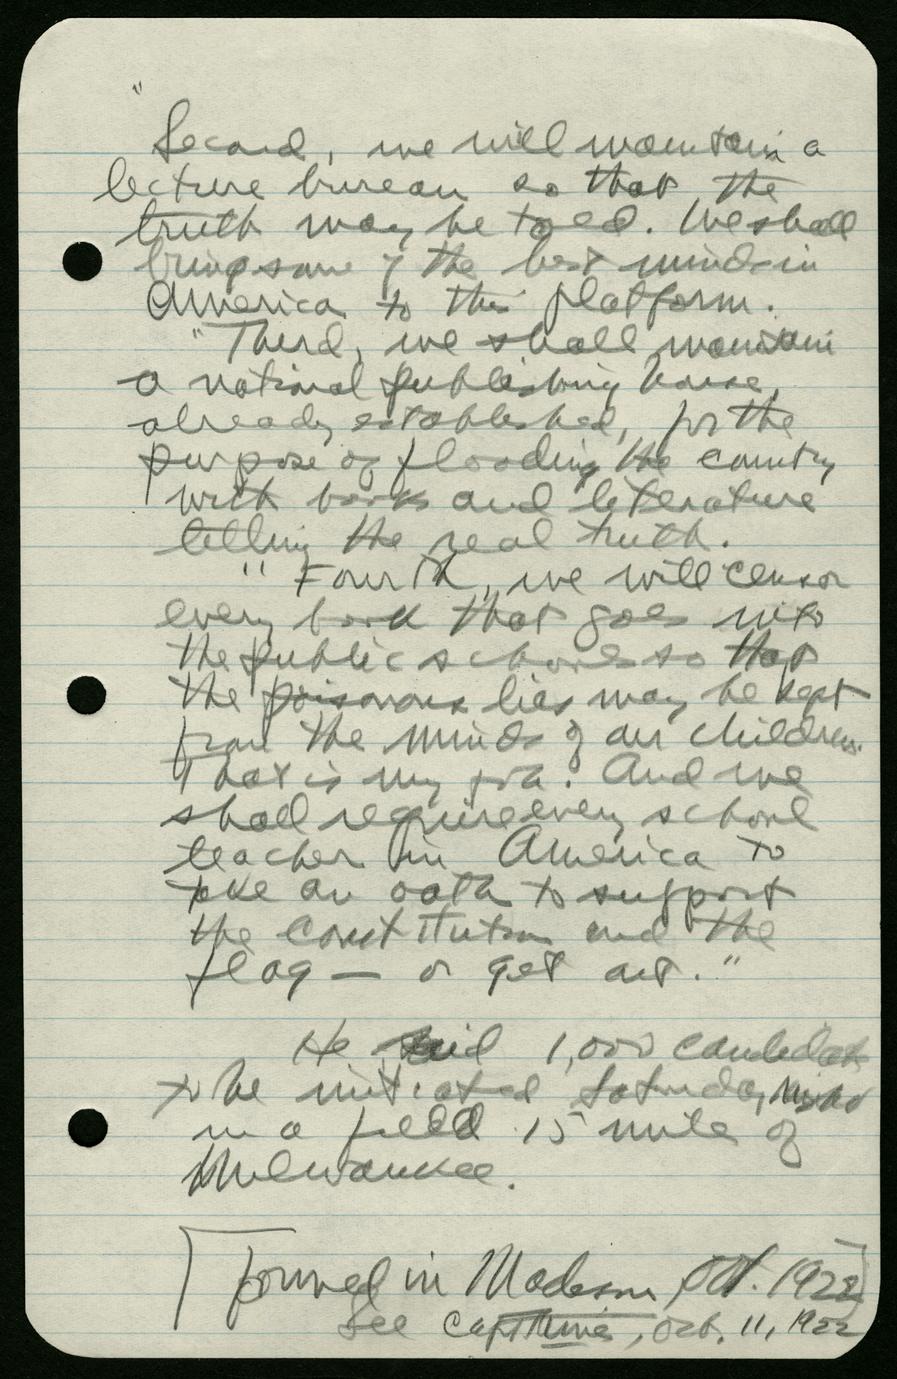 "
Second, we will maintain a
lecture bureau so that the
truth may be told. We shall
bring some of the best minds in
America to this platform.
"Third, we shall maintain
a national publishing house,
already established, for the
purpose of flooding the country
with books and literature
telling the real truth.
"Fourth, we will censor
every book that goes into
the public schools so that
the poisonous lies may be kept
from the minds of our children.
That is my job. And we
shall require every school
teacher in America to
take an oath to support
the constitution and the
flag — or get out."
He said 1,000 candidates
to be initiated Saturday night
in a field 15 mile of
Milwaukee.
[Formed in Madison, Oct. 1922]
See CapTimes, Oct. 11, 1922